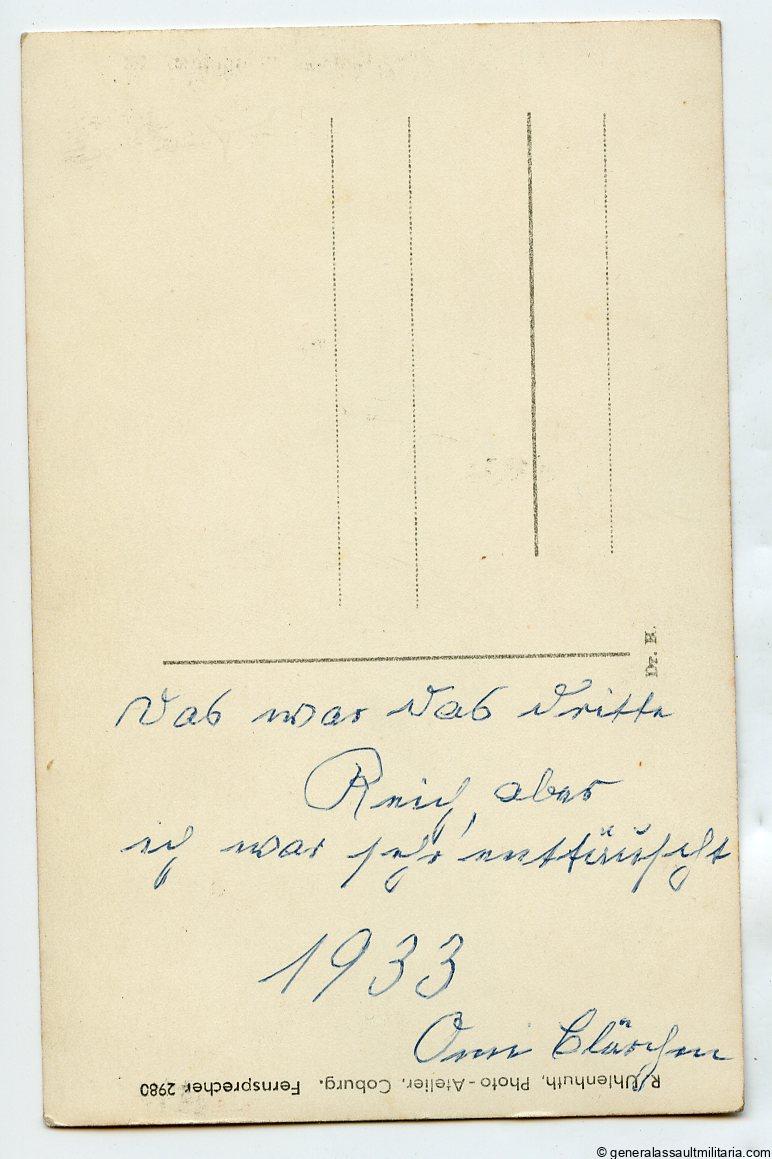 Das war das dritte
Reich, aber
ich war sehr enttäuscht
1933
Omi Clärchen
R. Uhlenhuth, Photo-Atelier, Coburg. Fernsprecher 2980
Dr. H.
© generalassaultmilitaria.com